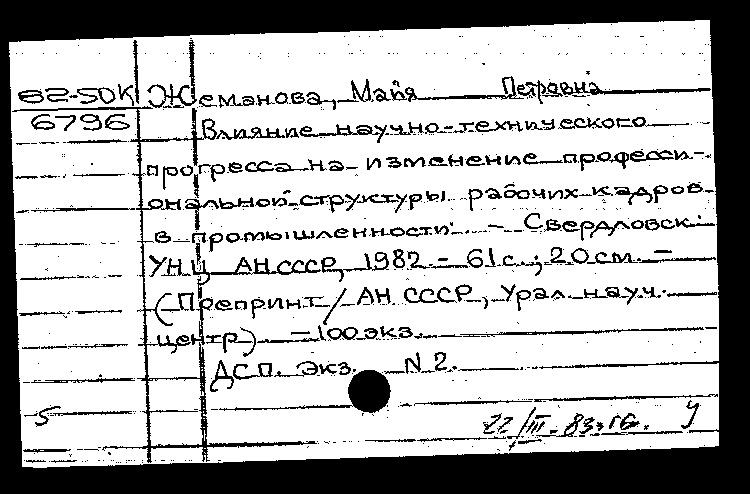 82-5DK Жеманова, Майя Петровна
6796 Влияние научно-технического
прогресса на изменение професси-
ональной структуры рабочих кадров
в промышленности. - Свердловск:
УНЦ АН СССР, 1982. - 61 с.; 20 см. -
(Препринт / АН СССР, Урал. науч.
центр) - 100 экз.
ДСП. Экз. N 2.
5
22/III-83г.